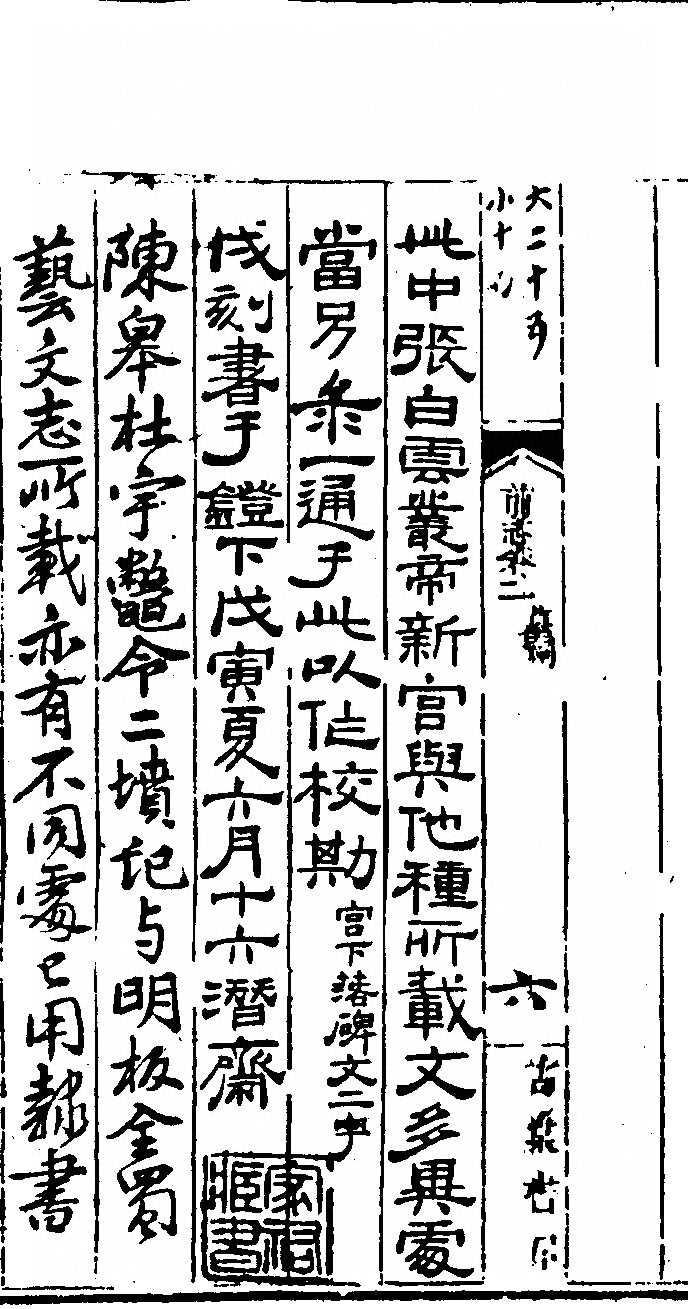 大二十五
小十
前志卷二
六
此中張白雲叢帝新宮與他種所載文多異處
當另彔一通于此以作校勘
宮下落碑文二字
伐刻書于鐙下戊寅夏六月十六潛齋
陳皋杜宇鼈令二墳記与明板全蜀
藝文志所載亦有不同處已用隸書